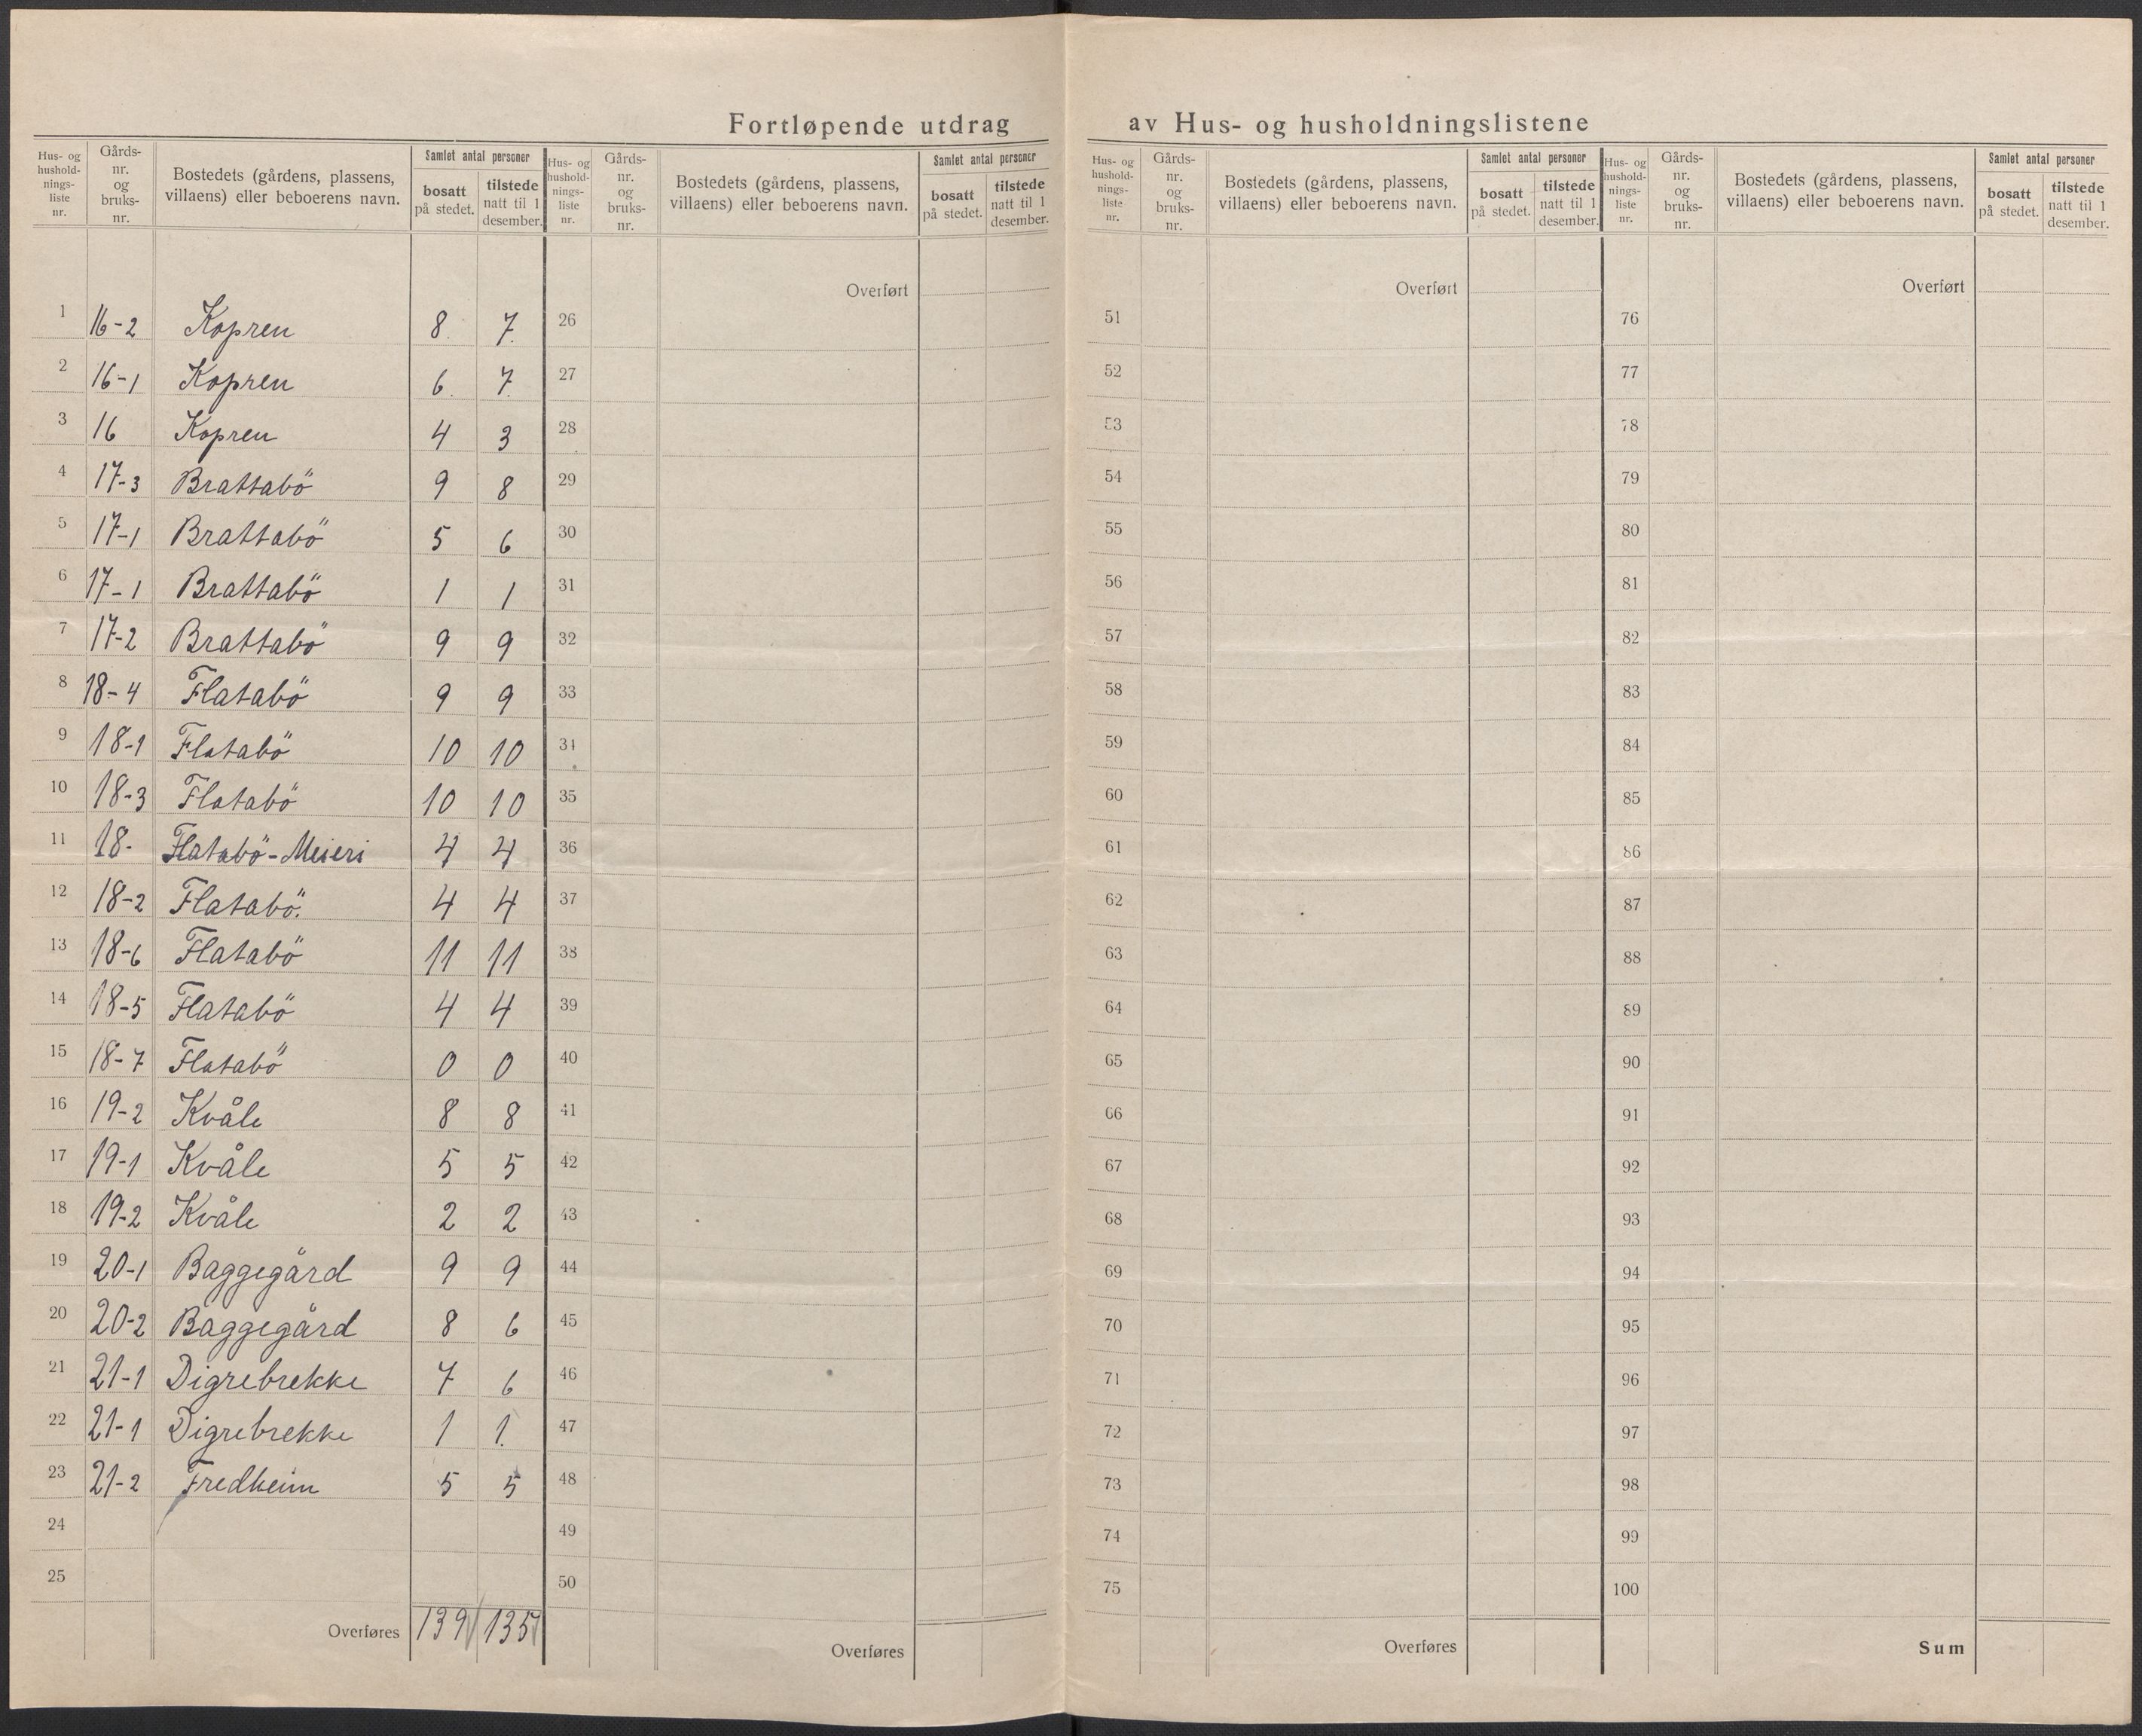 Fortløpende utdrag av Hus- og husholdningslistene
Hus- og hushold-nings-liste nr. Gårds-nr. og bruks-nr. Bostedets (gårdens, plassens, villaens) eller beboerens navn. Samlet antal personer bosatt på stedet. tilstede natt til 1 desember.
1 16-2 Kopren 8 7
2 16-1 Kopren 6 7
3 16 Kopren 4 3
4 17-3 Brattabö 9 8
5 17-1 Brattabö 5 6
6 17-1 Brattabö 1 1
7 17-2 Brattabö 9 9
8 18-4 Flatabö 9 9
9 18-1 Flatabö 10 10
10 18-3 Flatabö 10 10
11 18- Flatabö-Meieri 4 4
12 18-2 Flatabö. 4 4
13 18-6 Flatabö 11 11
14 18-5 Flatabö 4 4
15 18-7 Flatabö 0 0
16 19-2 Kvåle 8 8
17 19-1 Kvåle 5 5
18 19-2 Kvåle 2 2
19 20-1 Baggegård 9 9
20 20-2 Baggegård 8 6
21 21-1 Digrebrekke 7 6
22 21-1 Digrebrekke 1 1.
23 21-2 Fredheim 5 5
24
25
Overføres 139 135
Hus- og hushold-nings-liste nr. Gårds-nr. og bruks-nr. Bostedets (gårdens, plassens, villaens) eller beboerens navn. Samlet antal personer bosatt på stedet. tilstede natt til 1 desember.
Overført
26
27
28
29
30
31
32
33
34
35
36
37
38
39
40
41
42
43
44
45
46
47
48
49
50
Overføres
Hus- og hushold-nings-liste nr. Gårds-nr. og bruks-nr. Bostedets (gårdens, plassens, villaens) eller beboerens navn. Samlet antal personer bosatt på stedet. tilstede natt til 1 desember.
Overført
51
52
53
54
55
56
57
58
59
60
61
62
63
64
65
66
67
68
69
70
71
72
73
74
75
Overføres
Hus- og hushold-nings-liste nr. Gårds-nr. og bruks-nr. Bostedets (gårdens, plassens, villaens) eller beboerens navn. Samlet antal personer bosatt på stedet. tilstede natt til 1 desember.
Overført
76
77
78
79
80
81
82
83
84
85
86
87
88
89
90
91
92
93
94
95
96
97
98
99
100
Sum